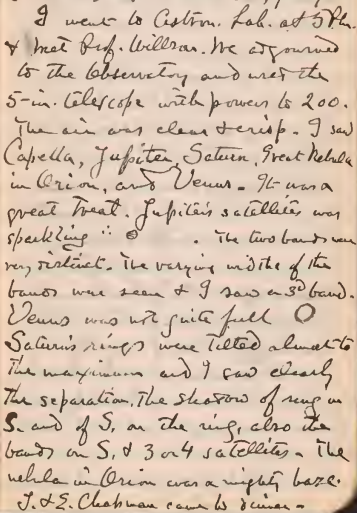 I went to Astron. Lab. at 5 P.M.
& met Prof. Willson. We adjourned
to the Observatory and used the
5-in. telescope with powers to 200.
The air was clear & crisp. I saw
Capella, Jupiter, Saturn, Great Nebula
in Orion, and Venus. It was a
great treat. Jupiter's satellites was
sparkling . The two bands were
very distinct. The varying widths of the
bands were seen & I saw a 3d band.
Venus was not quite full
Saturn's rings were tilted almost to
the maximum and I saw clearly
the separation. The shadow of ring on
S. and of S. on the ring, also the
bands on S. & 3 or 4 satellites. The
nebula in Orion was a mighty haze.
J. & E. Chapman came to dinner.